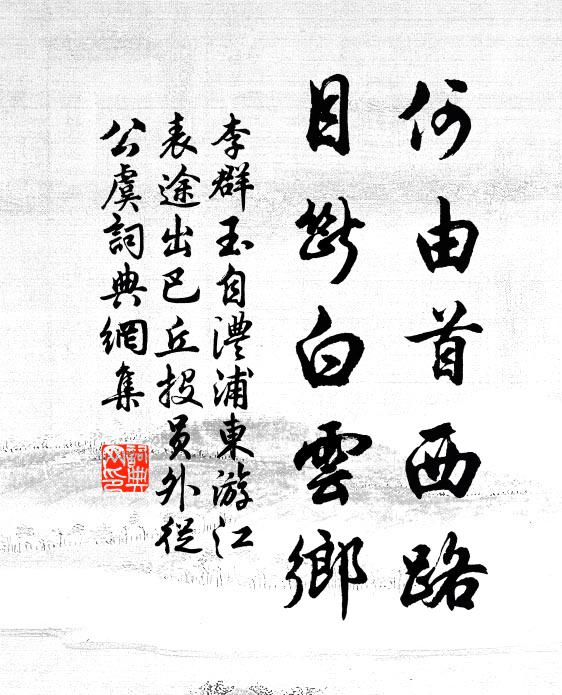 何由首西路
目斷白雲鄉
李群玉自澧浦東游江
表途出巴丘投員外從
公虞詞典網集
詞典网印